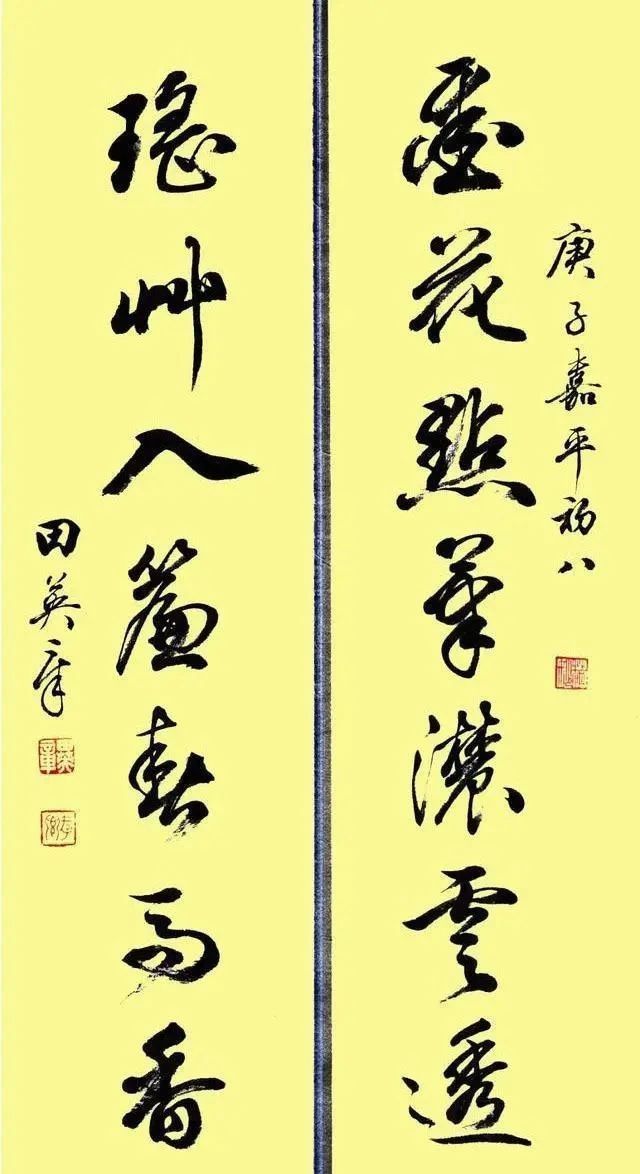 墨花點筆濃雲透
庚子嘉平初八
瑤艸入簾春雨香
田英章